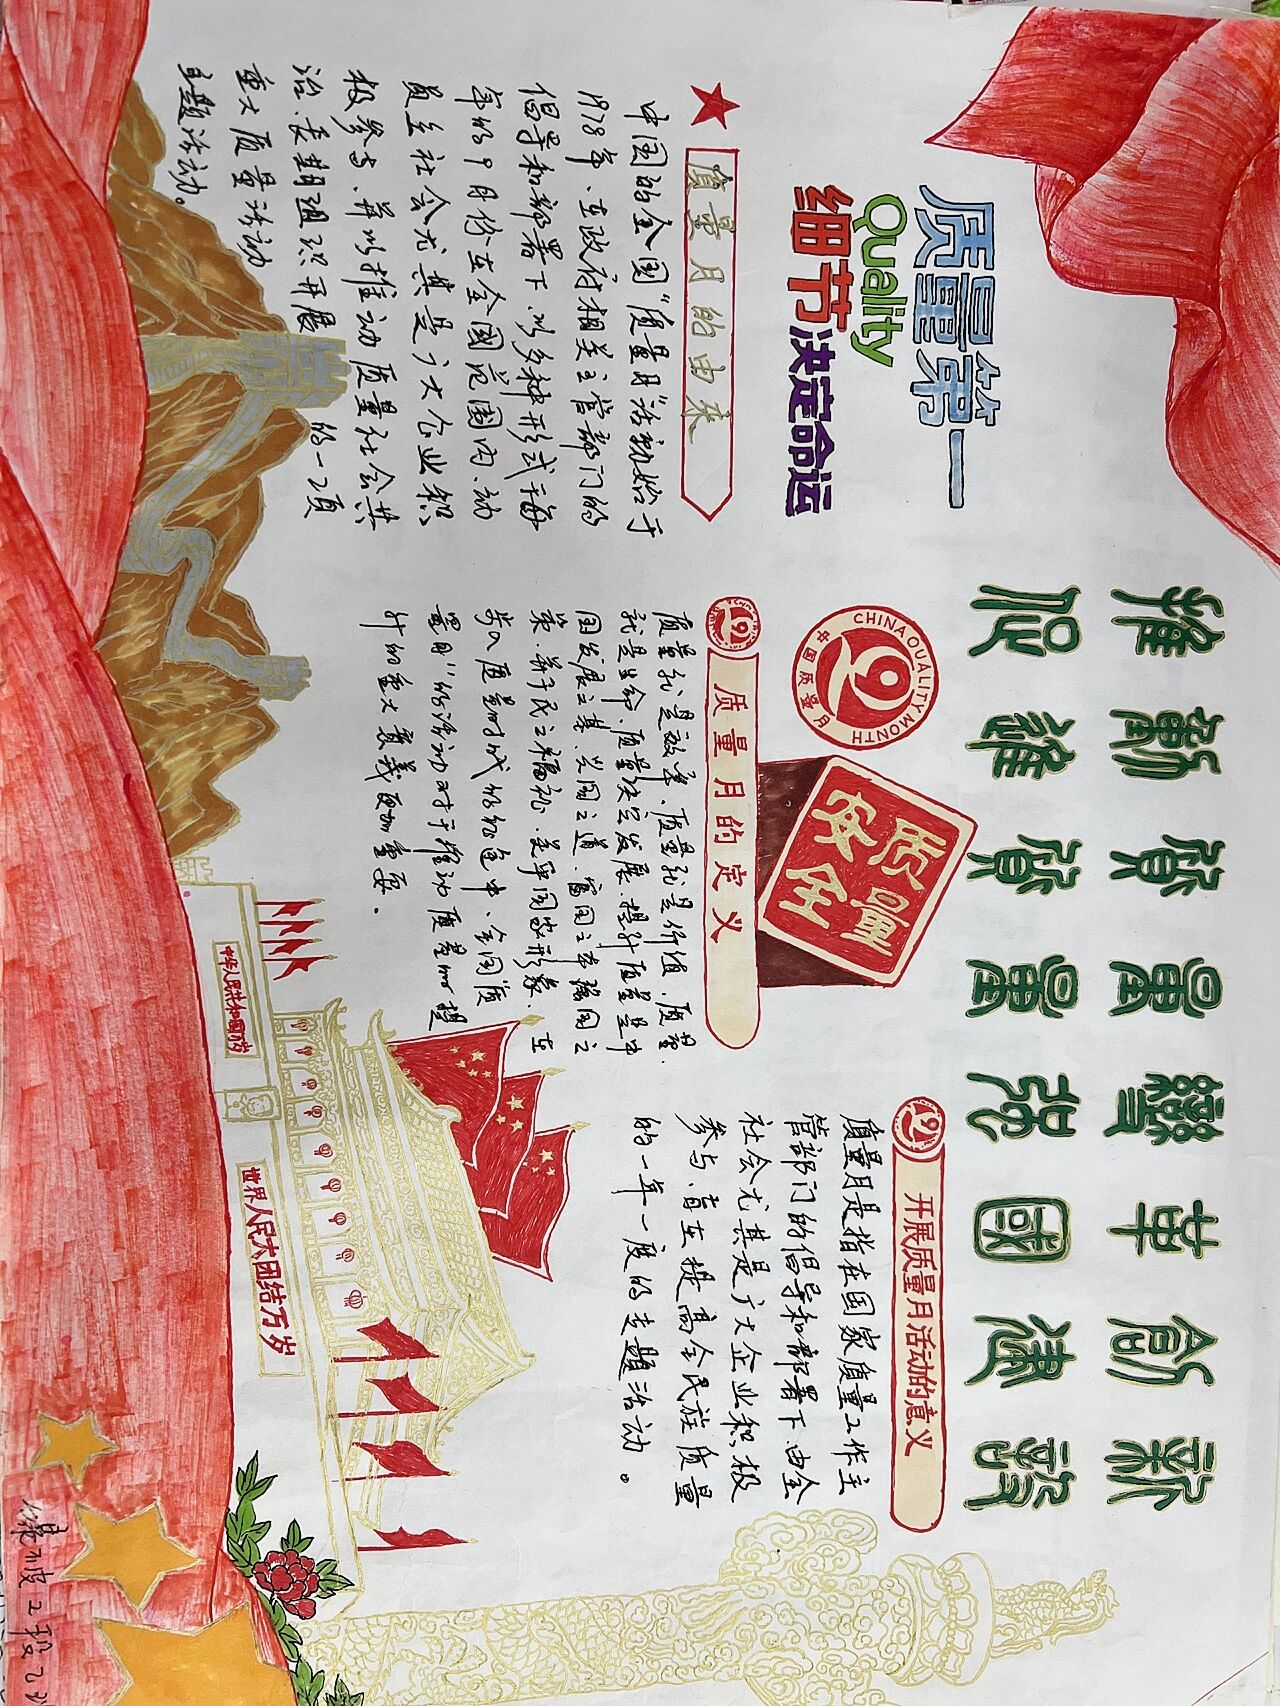 推動質量變革創新
促進質量強國建設
质量第一
Quality
细节决定命运
质量月的由来
中国的全国“质量月”活动始于
1978年、在政府相关主管部门的
倡导和部署下、以多种形式于每
年的9月份在全国范围内、动
员全社会尤其是广大企业积
极参与、并以推动质量社会共
治、长期组织开展的一项
重大质量活动
主题活动。
CHINA QUALITY MONTH
9
中国质量月
质量
安全
质量月的定义
质量就是效率、质量就是价值、质量
就是生命、质量决定发展、提升质量是中
国发展之基、兴国之道、富国之本、强国之
策、关乎国家形象、在
步入质量时代的征途中、全国“质
量月”的活动对于推动质量的提
升的重大意义更加重要.
开展质量月活动的意义
质量月是指在国家质量工作主
管部门的倡导和部署下、由全
社会尤其是广大企业积极
参与、旨在提高全民族质量
的一年一度的主题活动。
中华人民共和国万岁
世界人民大团结万岁